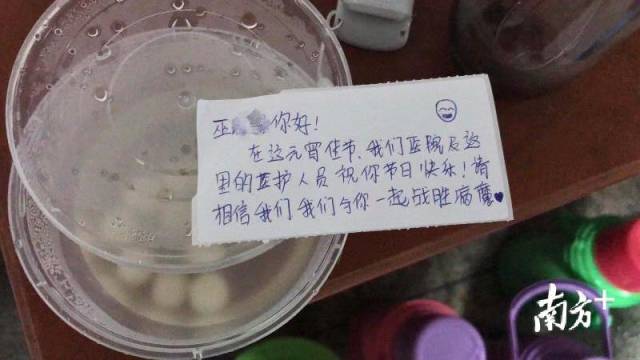 巫 你好!
在这元宵佳节,我们医院及这
里的医护人员祝你节日快乐!请
相信我们我们与你一起战胜病魔♥
南方+